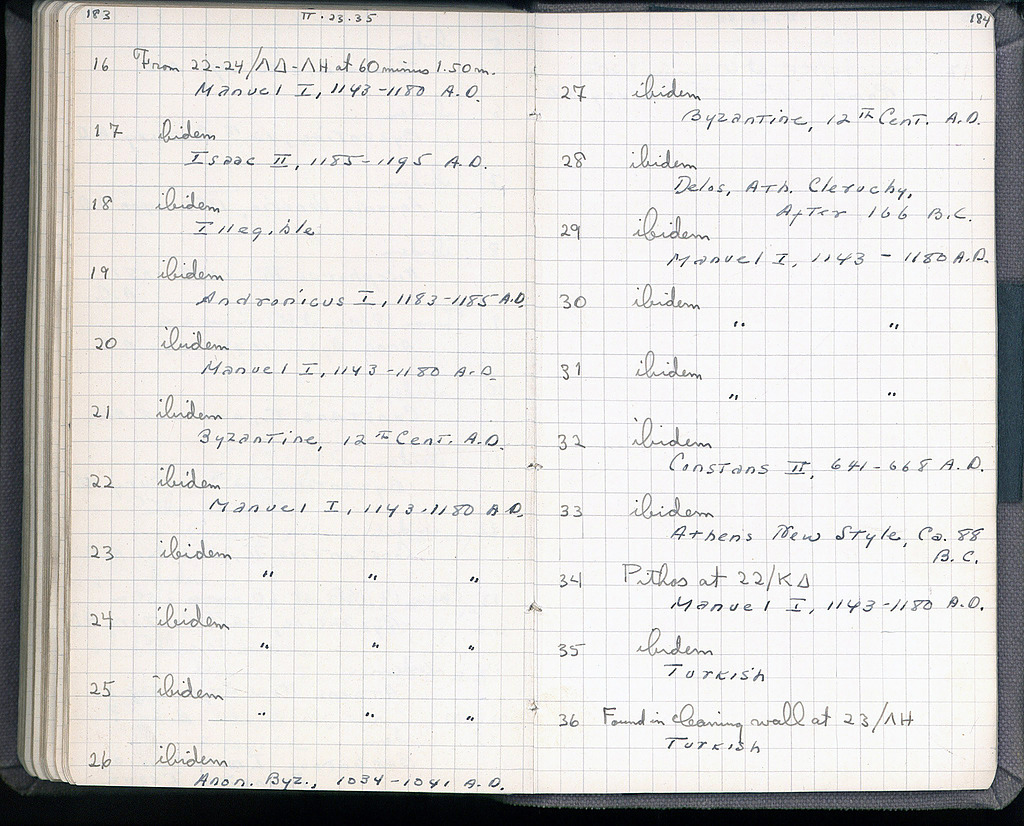 183
II·23·35
16 From 22-24/ΛΔ-ΛΗ at 60 minus 1.50 m.
Manuel I, 1143-1180 A.D.
17 ibidem
Isaac II, 1185-1195 A.D.
18 ibidem
Illegible
19 ibidem
Andronicus I, 1183-1185 A.D.
20 ibidem
Manuel I, 1143-1180 A.D.
21 ibidem
Byzantine, 12th Cent. A.D.
22 ibidem
Manuel I, 1143-1180 A.D.
23 ibidem
" " "
24 ibidem
" " "
25 ibidem
" " "
26 ibidem
Anon. Byz., 1034-1041 A.D.
184
27 ibidem
Byzantine, 12th Cent. A.D.
28 ibidem
Delos, Ath. Cleruchy,
After 166 B.C.
29 ibidem
Manuel I, 1143 - 1180 A.D.
30 ibidem
" "
31 ibidem
" "
32 ibidem
Constans II, 641-668 A.D.
33 ibidem
Athens New Style, Ca. 88
B.C.
34 Pithos at 22/ΚΔ
Manuel I, 1143-1180 A.D.
35 ibidem
Turkish
36 Found in cleaning wall at 23/ΛΗ
Turkish